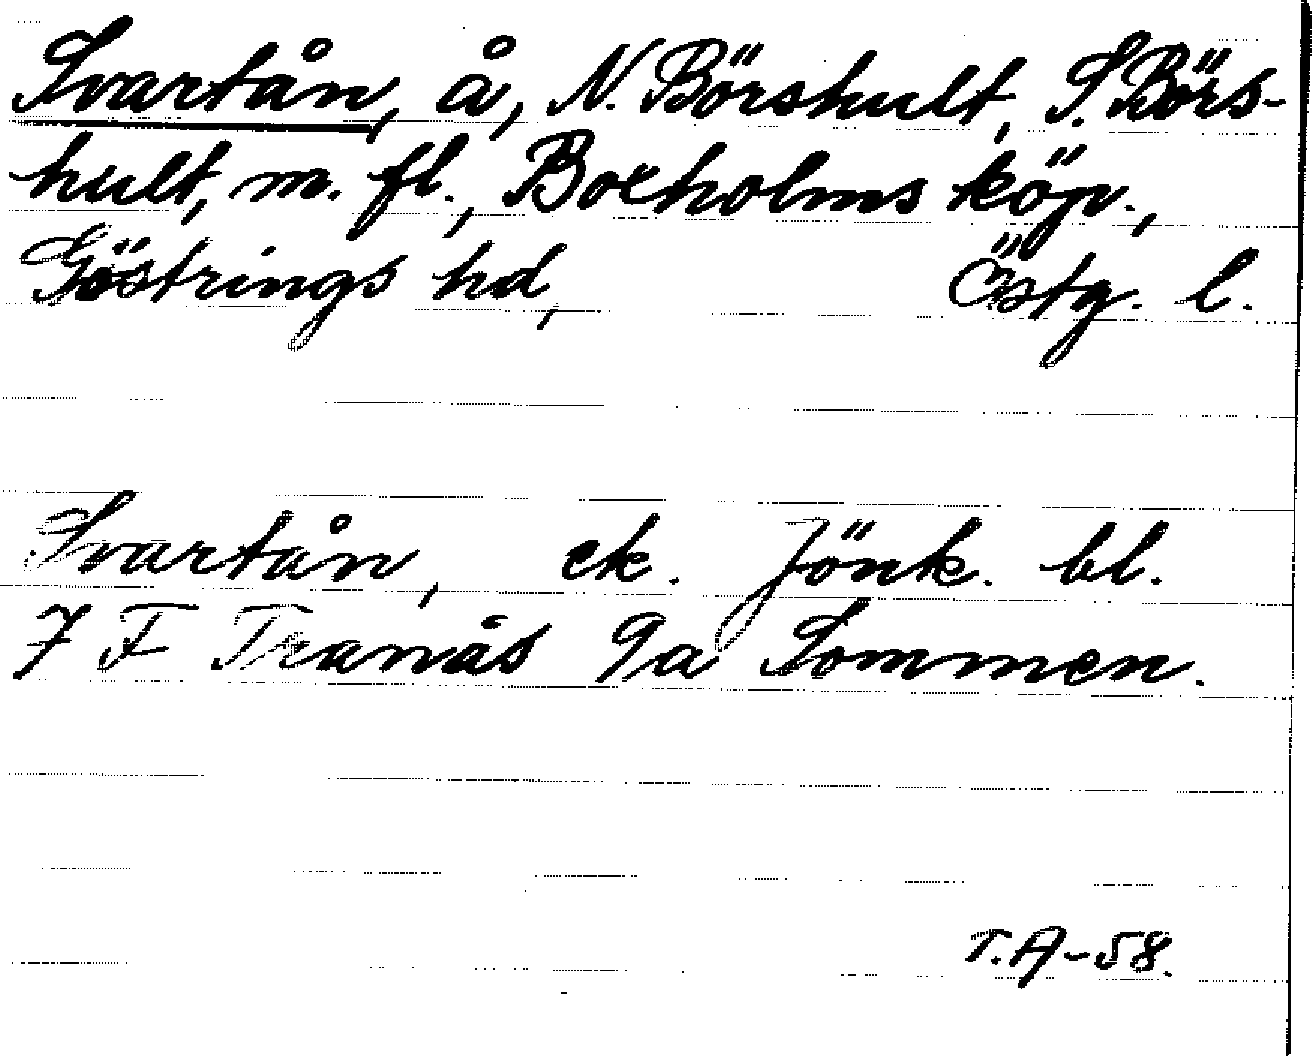 Svartån, å, N. Börshult, S. Börs-
hult, m. fl., Boxholms köp.,
Göstrings hd, Östg. l.
Svartån, ek. Jönk. bl.
7 F Tranås 9a Sommen.
T.A-58.